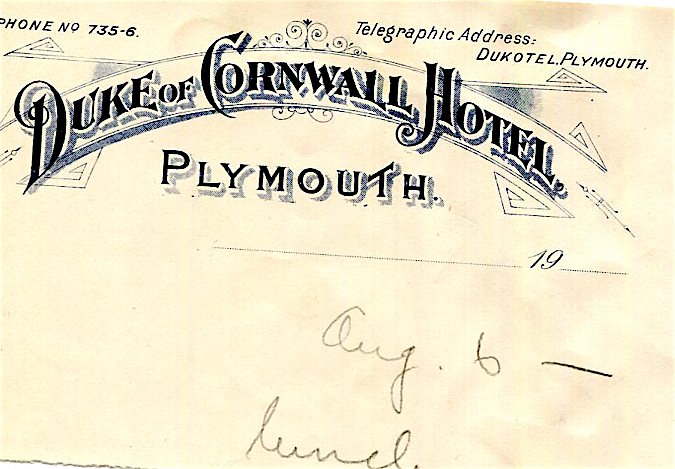 PHONE No 735-6.
Telegraphic Address:
DUKOTEL, PLYMOUTH.
DUKE OF CORNWALL HOTEL,
PLYMOUTH.
19
Aug. 6 —